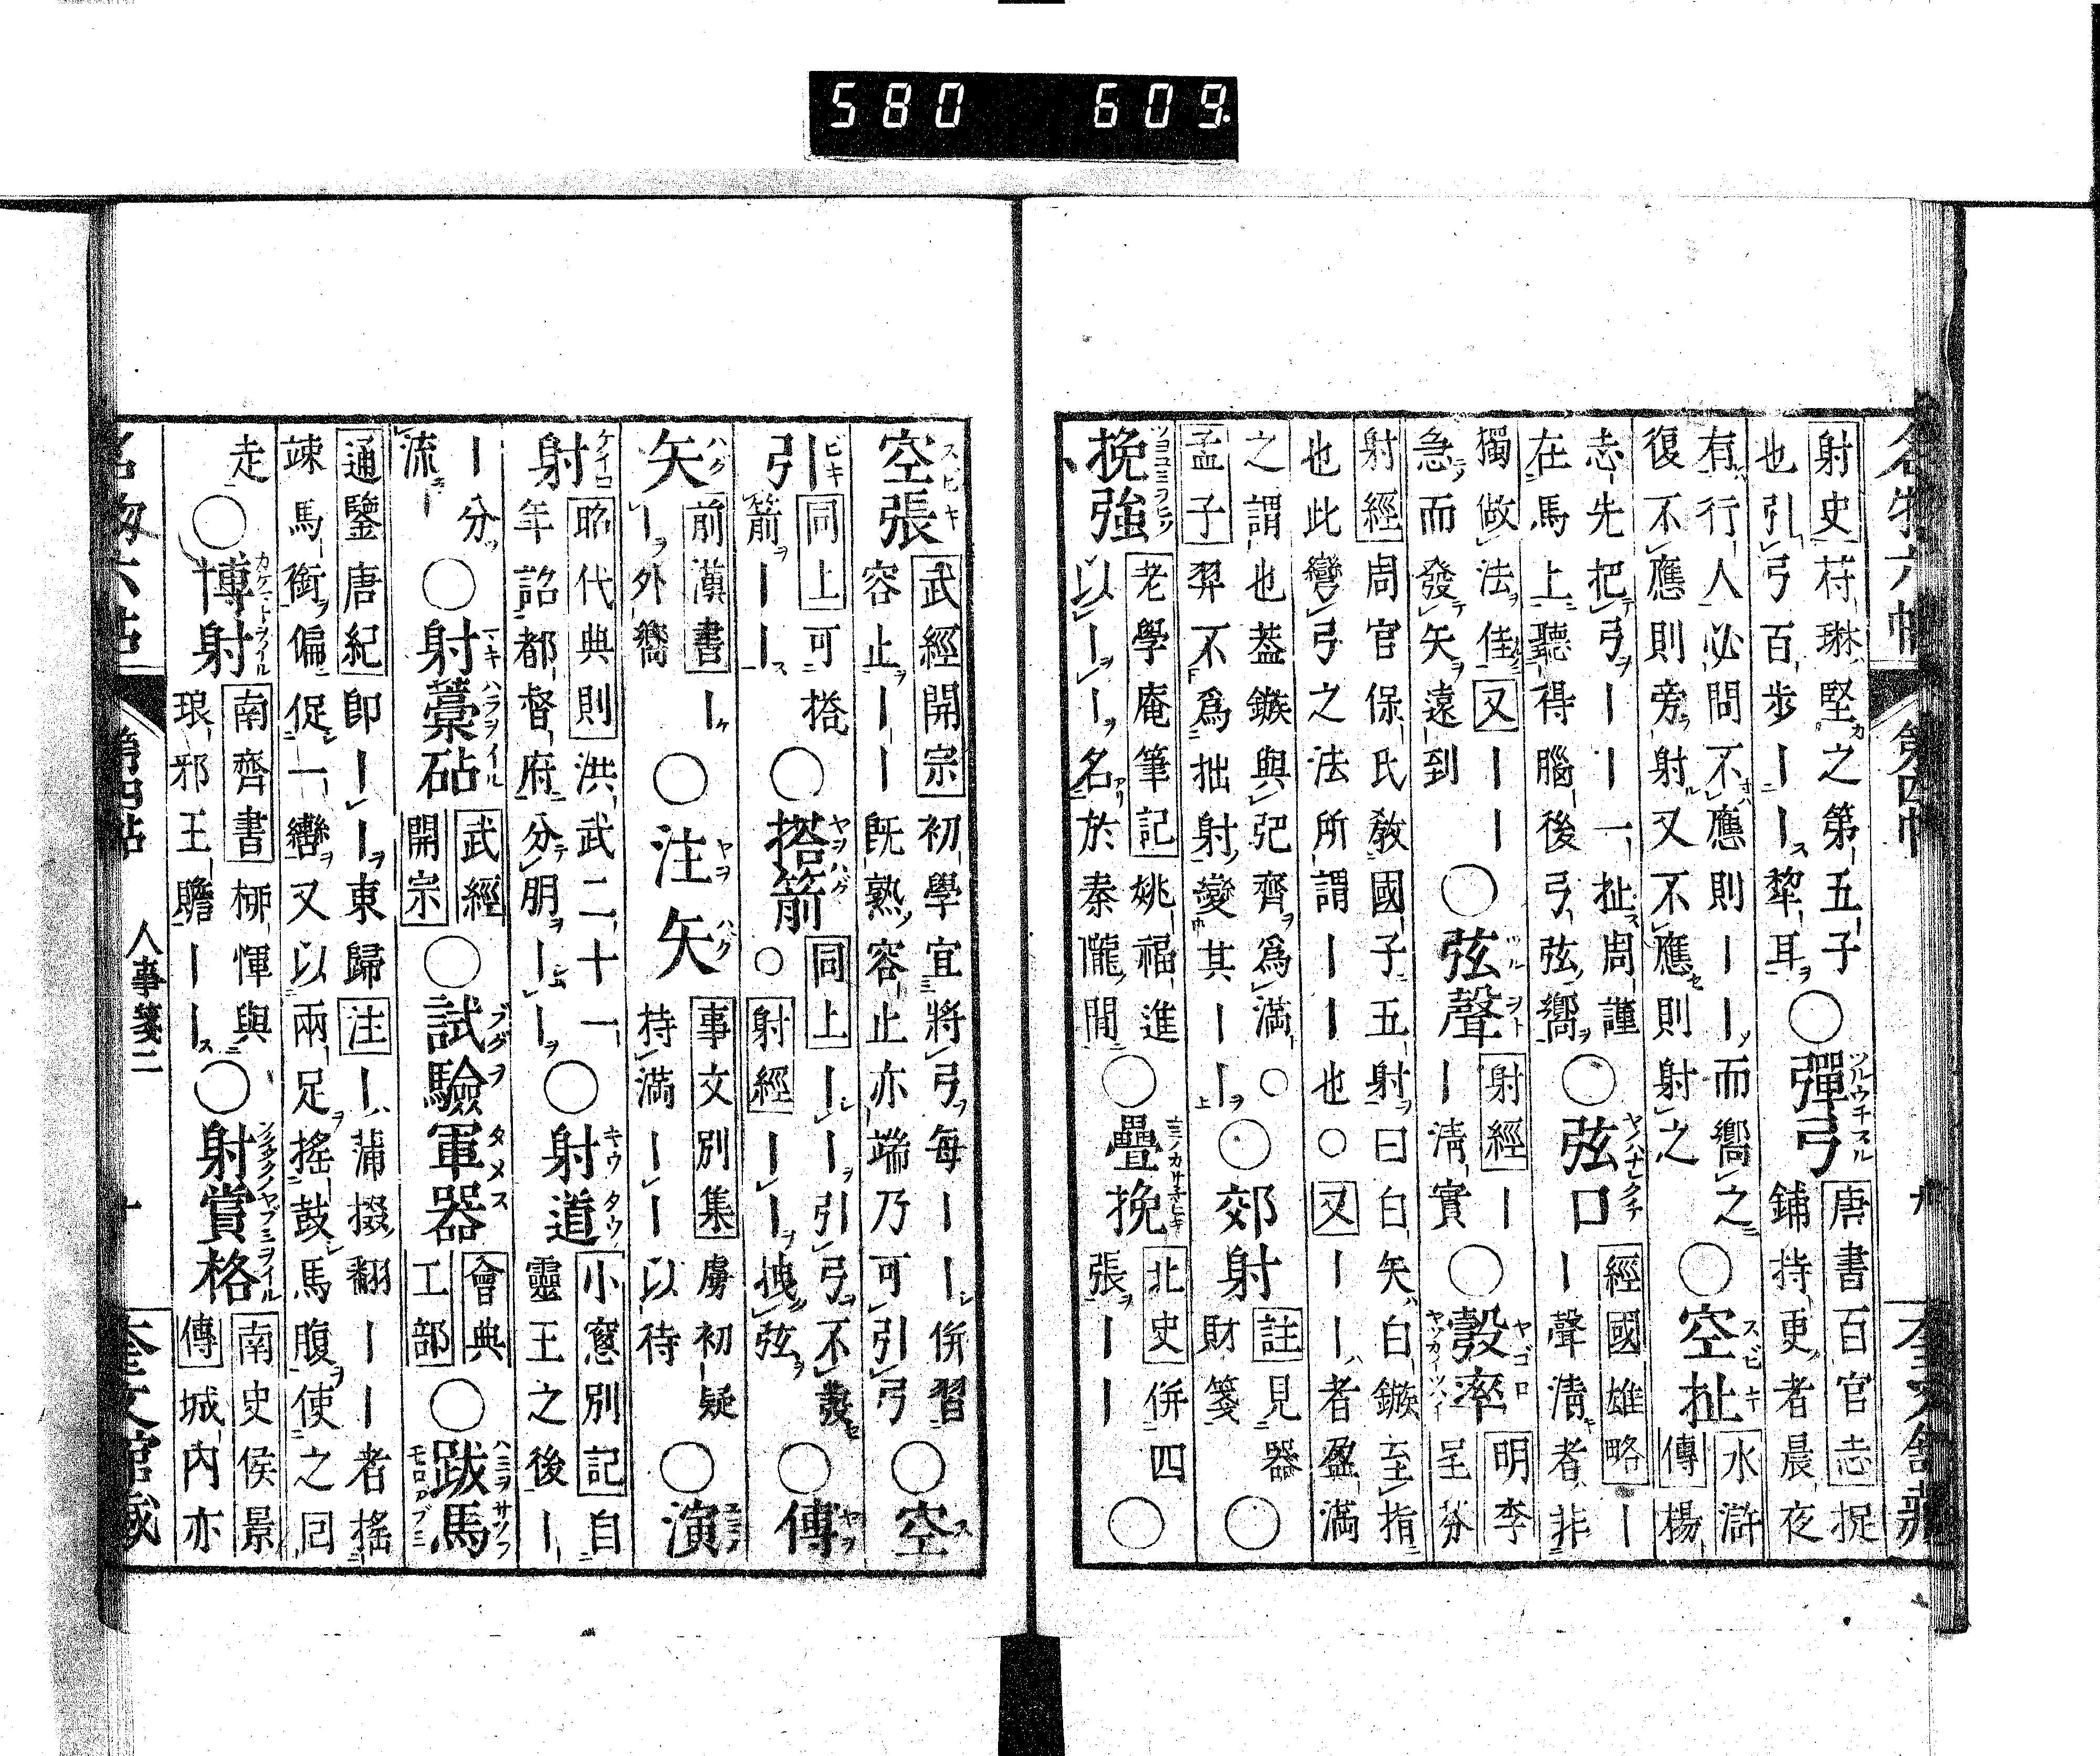 580 609
名物六帖 第四帖 九 奎文館藏
射史苻琳堅之第五子
也引弓百步｜｜犂耳○彈弓唐書百官志捉
鋪持更者晨夜
有行人必問不應則｜｜而嚮之
復不應則旁射又不應則射之○空扯水滸傳楊
志先把弓｜｜一扯周謹
在馬上聽得腦後弓弦嚮○弦口經國雄略｜
｜聲清者非
獨倣法佳又｜｜
急而發矢遠到○弦聲射經｜
｜清實○彀率明李呈芬
射經周官保氏敎國子五射曰白矢白鏃至指
也此彎弓之法所謂｜｜也○又｜｜者盈滿
之謂也葢鏃與弝齊爲滿○
孟子羿不爲拙射變其｜｜○郊射註見器
財箋○
挽強老學庵筆記姚福進
以｜｜名於秦隴間○疊挽北史併四
張｜｜○
空張武經開宗初學宜將弓每｜｜併習
容止｜｜旣熟容止亦端乃可引弓○空
引同上可搭
箭｜｜○搭箭同上｜｜引弓不發
○射經｜｜拽弦○傅
矢前漢書｜
｜外嚮○注矢事文別集虜初疑
持滿｜｜以待○演
射昭代典則洪武二十一
年詔都督府分朋｜｜○射道小窓別記自
靈王之後｜
｜分
流｜○射藁砧武經
開宗○試驗軍器會典
工部○跋馬
通鑒唐紀卽｜｜東歸注｜蒲撥翻｜｜者搖
竦馬銜偏促一轡又以兩足搖鼓馬腹使之囘
走○博射南齊書柳惲與
琅邪王瞻｜｜○射賞格南史侯景
傳城內亦
名物六帖 第四帖 人事箋二 十 奎文館藏